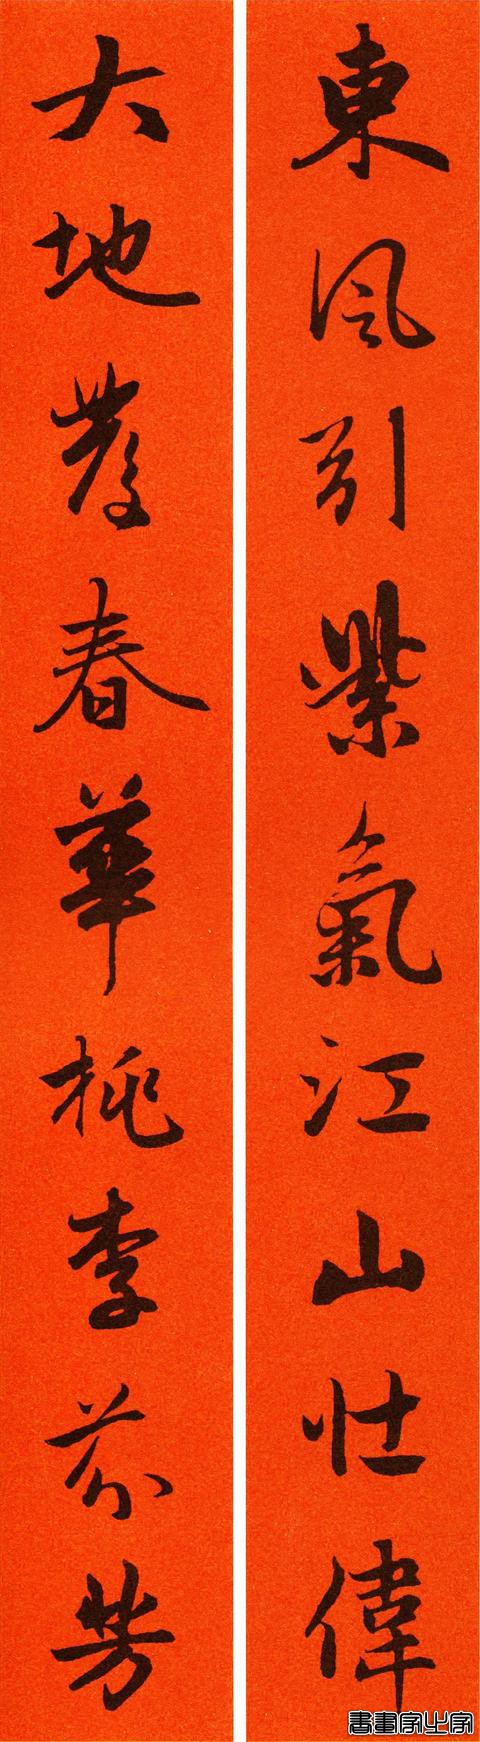 東風引紫氣江山壯偉
大地發春華桃李芬芳
書畫字字